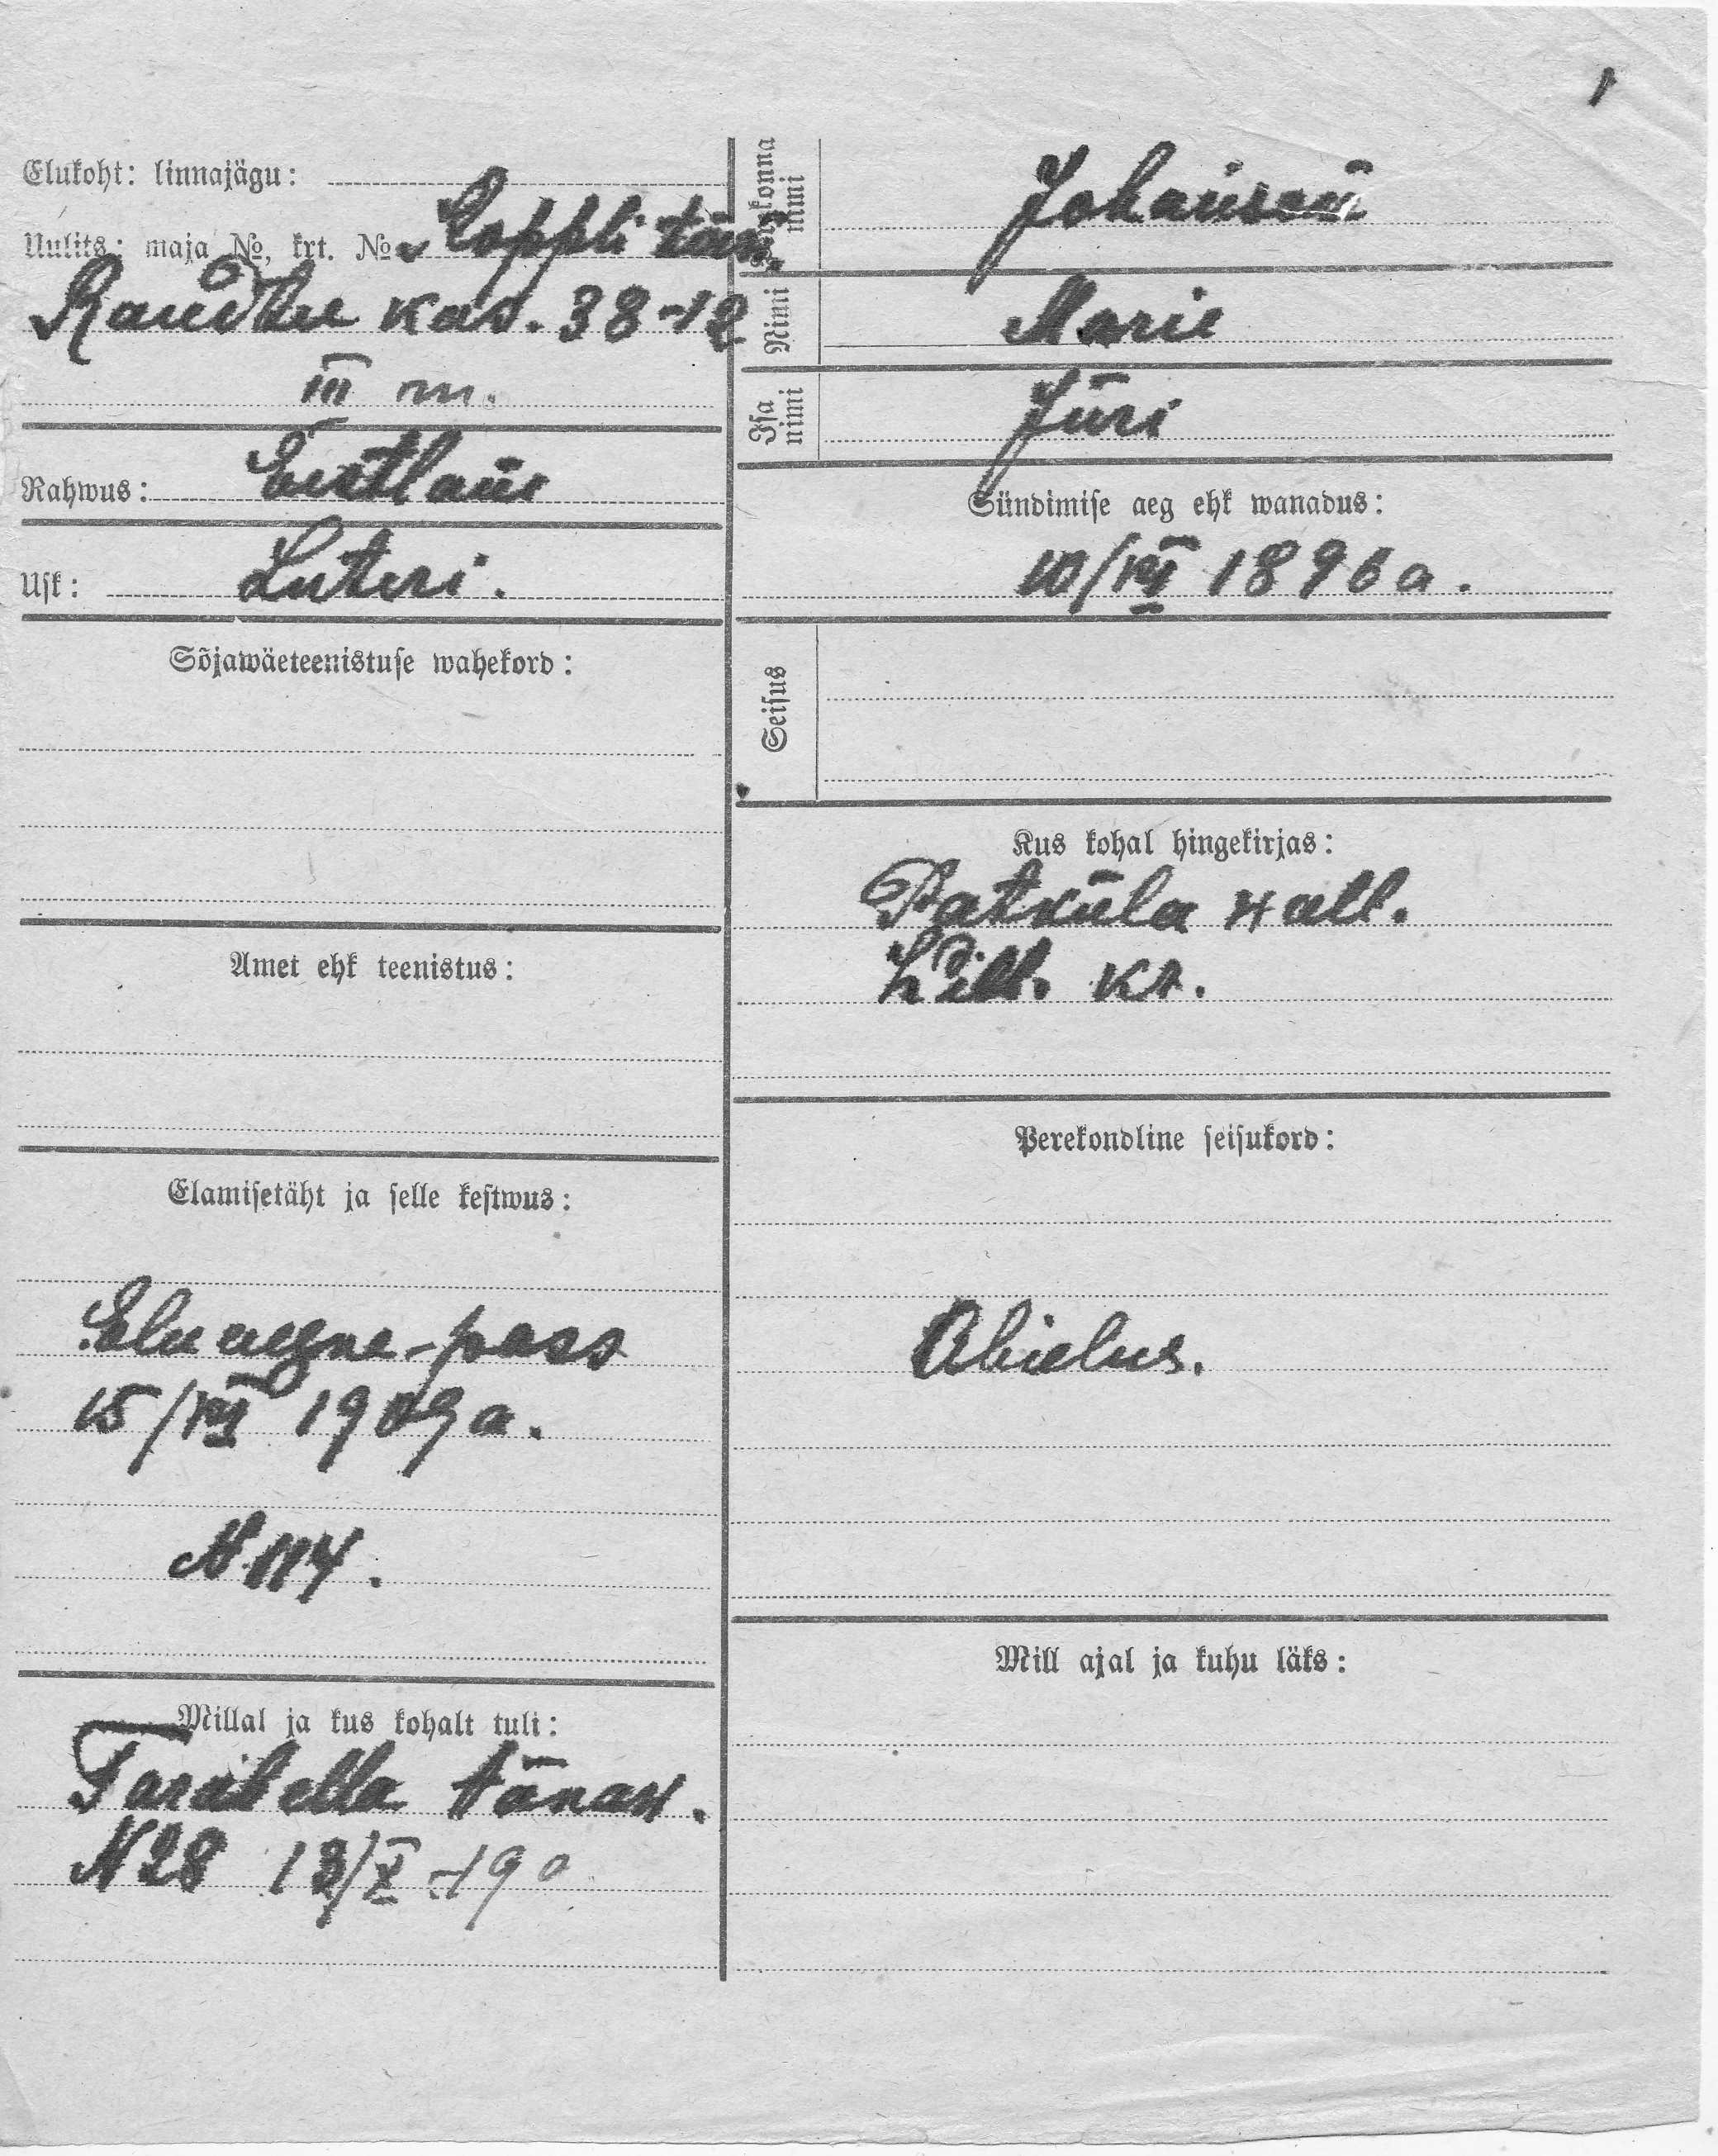 1
Elukoht: linnajägu:
Uulits: maja №, krt. № Koppli tän.
Raudtee kas. 38-12
III m.
Rahwus: Eestlane
Usk: Luteri.
Sõjawäeteenistuse wahekord:
Amet ehk teenistus:
Elamisetäht ja selle kestwus:
Elu aegne-pass
15/VII 1909 a.
N 114.
Millal ja kus kohalt tuli:
tänaw.
N 28 13/X -19
Perekonna nimi
Johanson
Nimi
Marie
Isa nimi
Jüri
Sündimise aeg ehk wanadus:
10/VII 1896 a.
Seisus
Kus kohal hingekirjas:
Patküla wall.
Wilj. kr.
Perekondline seisukord:
Abielus.
Mill ajal ja kuhu läks: